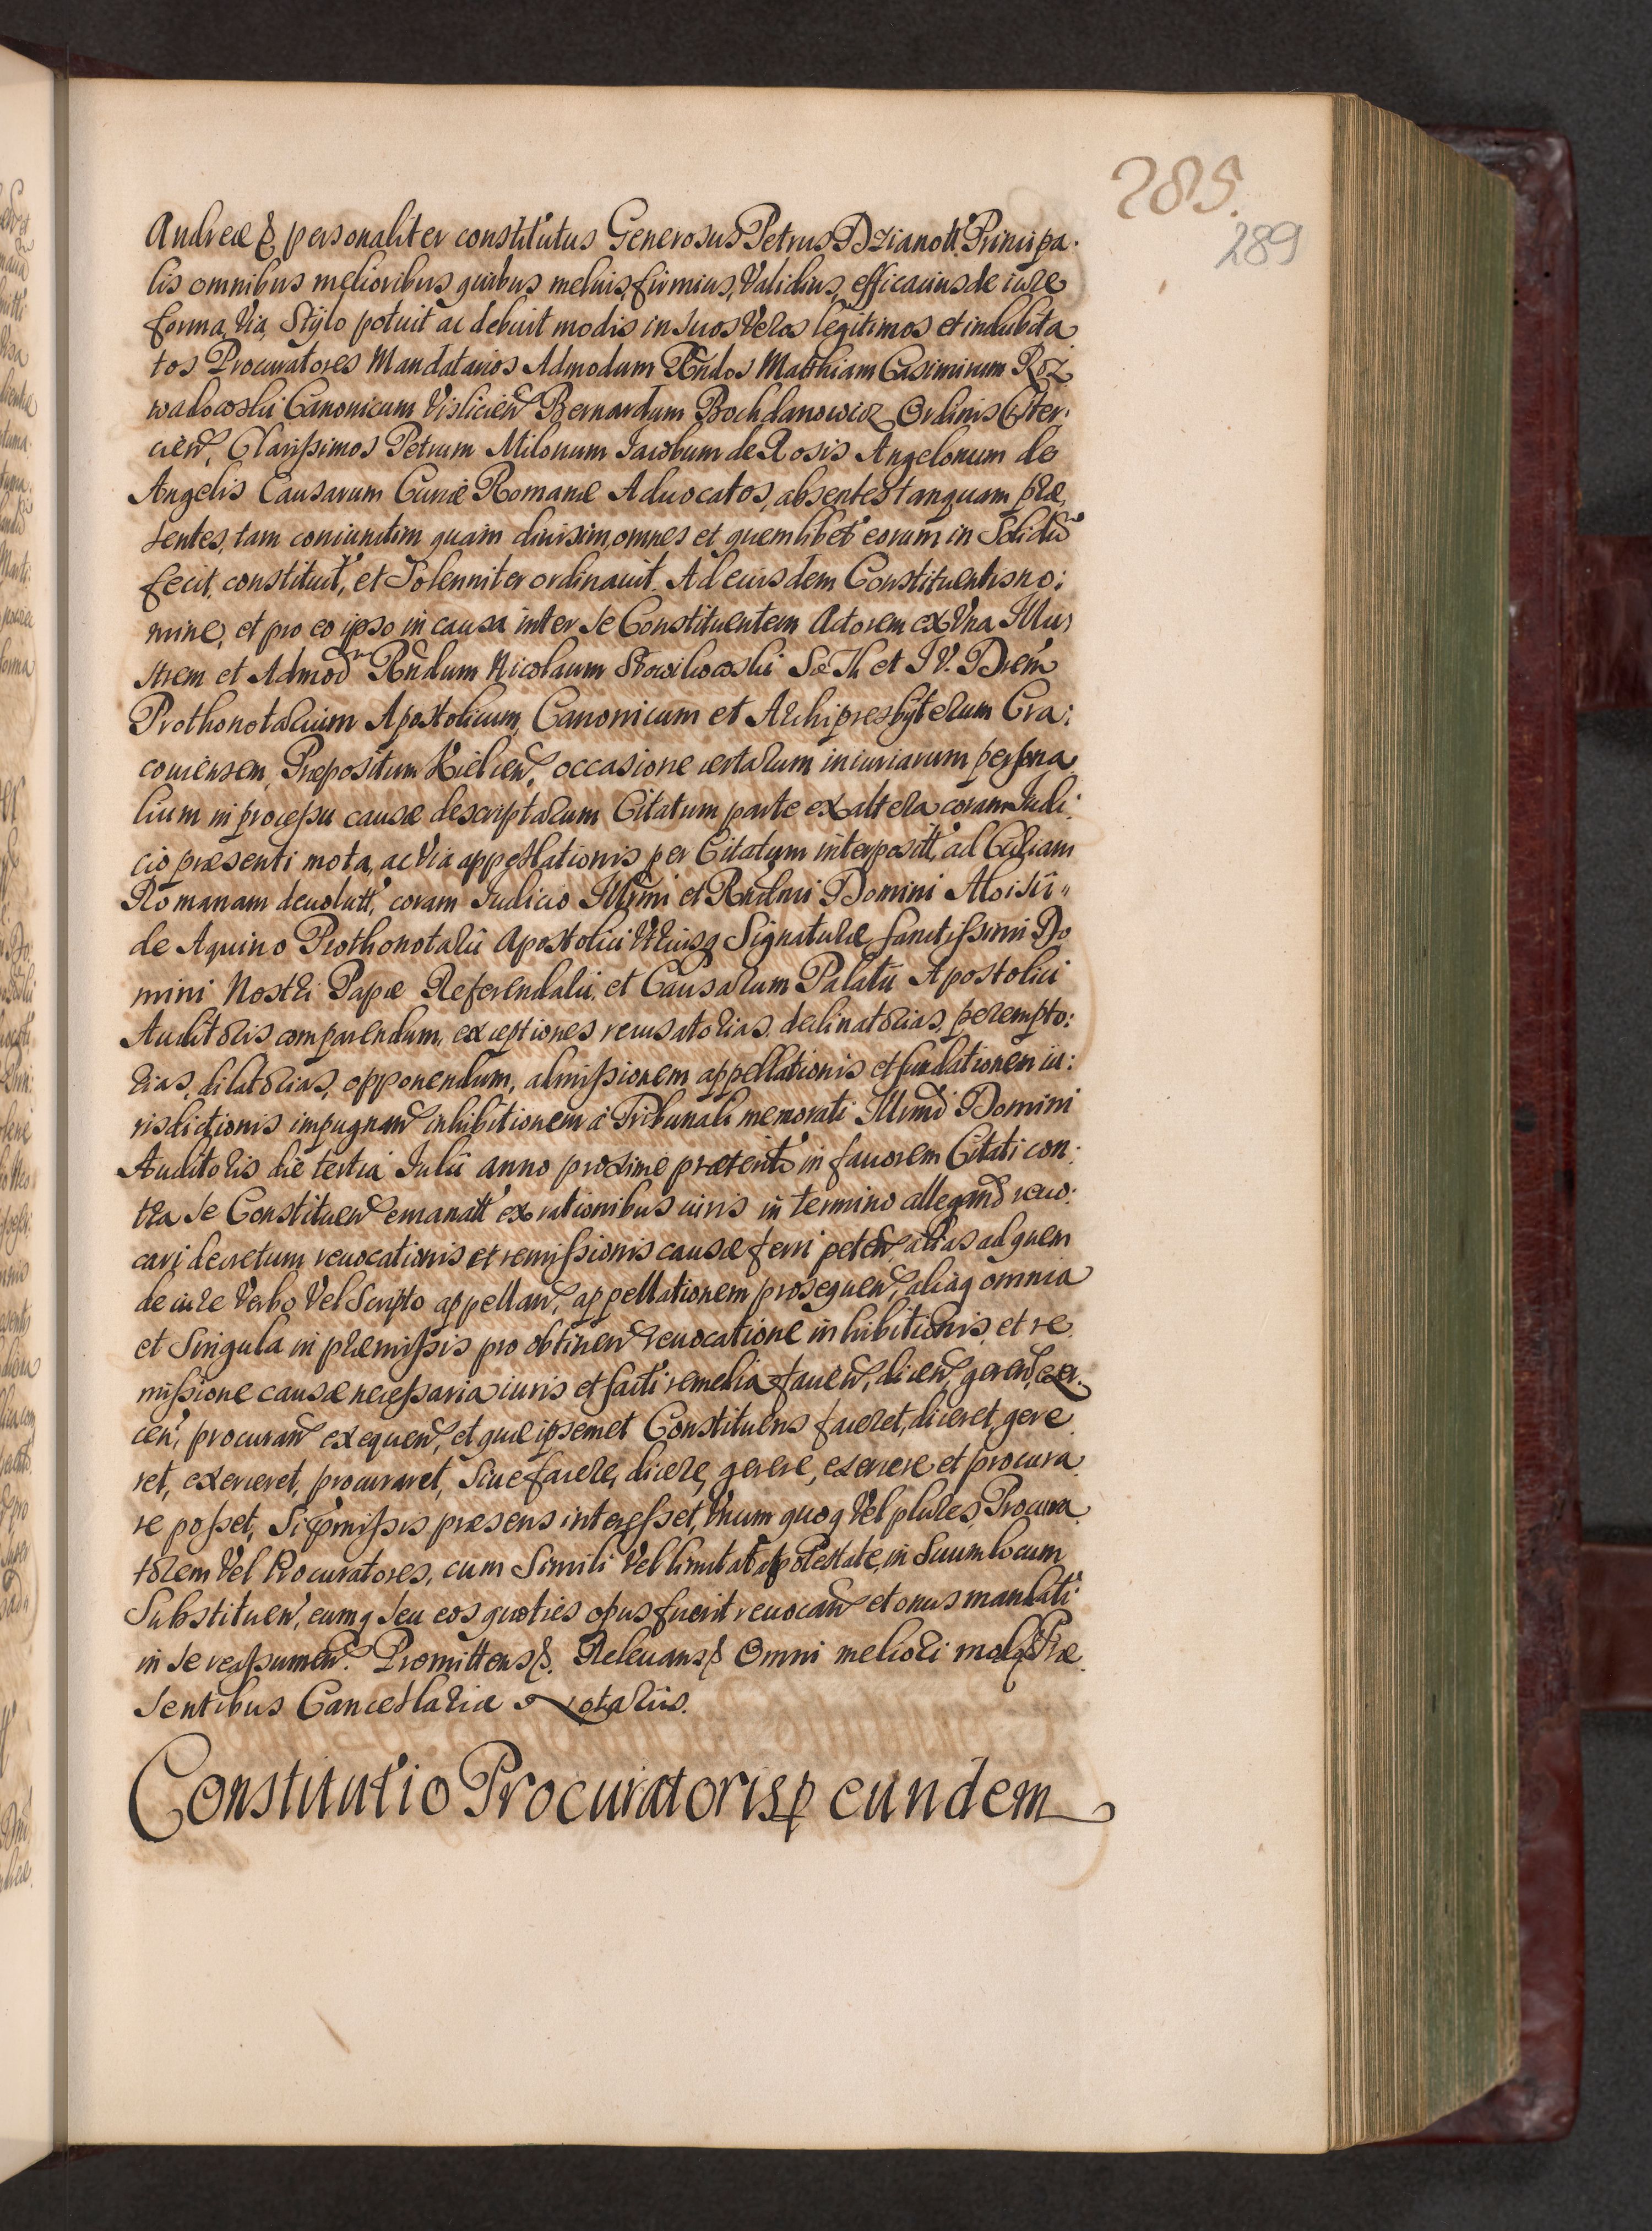 285.
289
Andreæ &c personaliter constitutus Generosus Petrus Dzianott Principa.
lis omnibus melioribus quibus melius, firmius, validius, efficacius de iure
forma, via, Stylo potuit ac debuit modis in suos veros legitimos et indubita
tos Procuratores Mandatarios Admodum Rndos Matthiam Casimirum Roz
wadowski Canonicum Vislicien Bernardum Bochdanowicz Ordinis Cister:
cien, Clarissimos Petrum Milonum Jacobum de Rosis Angelonum de
Angelis Causarum Curiæ Romanæ Aduocatos, absentes tanquam præ,
sentes, tam coniunctim quam diuisim, omnes et quemlibet eorum in Solidu
fecit, constituit, et Solenniter ordinauit. Ad eiusdem Constituentis no:
mine, et pro eo ipso in causa inter se Constituentem Actorem ex Vna Illu,
strem et Admod Rndum Nicolaum Słowikowski Sæ Th et I V. Drem
Prothonotarium Apostolicum, Canonicum et Archipresbyterum Cra:
couiensem, Præpositum Kielcien, occasione certarum iniuriarum persona
lium in processu causæ descriptarum Citatum parte ex altera coram Iudi.
cio præsenti mota, ac via appellationis per Citatum interposit, ad Curiam
Romanam deuolutt, coram Iudicio Illrmi et Rndmi Domini Aloisii
de Aquino Prothonotarii Apostolici Vtriusq Signaturæ Sanctissimi Do
mini Nostri Papæ Referendarii, et Causarum Palatii Apostolici
Auditoris comparendum, exceptiones recusatorias, declinatorias, perempto:
rias, dilatorias, opponendum, admissionem appellationis et fundationem iu:
risdictionis impugnan inhibitionem a Tribunali memorati Illrmi Domini
Auditoris die tertia Iulii anno proxime præterito in fauorem Citati con:
tra se Constituen emanatt ex rationibus iuris in termino allegand reuo:
cari decretum reuocationis et remissionis causæ ferri peten, alias ad quem
de iure Verbo Vel Scripto appellan, appellationem prosequen, aliaq omnia
et Singula in præmissis pro obtinen reuocatione inhibitionis, et re
missione causæ necessaria iuris et facti remedia facien, dicen, geren, exer.
cen, procuran exequen, et quæ ipsemet Constituens faceret, diceret, gere
ret, exerceret, procuraret, Siue facere, dicere, gerere, exercere et procura
re posset, Si præmissis præsens interesset, Vnum quoq Vel plures, Procura
torem Vel Procuratores, cum Simili Vel limitata potestate, in Suum locum
Substituen, eumq Seu eos quoties opus fuerit reuocan et onus mandati
in se reassumen. Promittens &c. Releuans &c Omni meliori modo Præ
sentibus Cancellariæ Notariis.
Constitutio Procuratoris p eundem